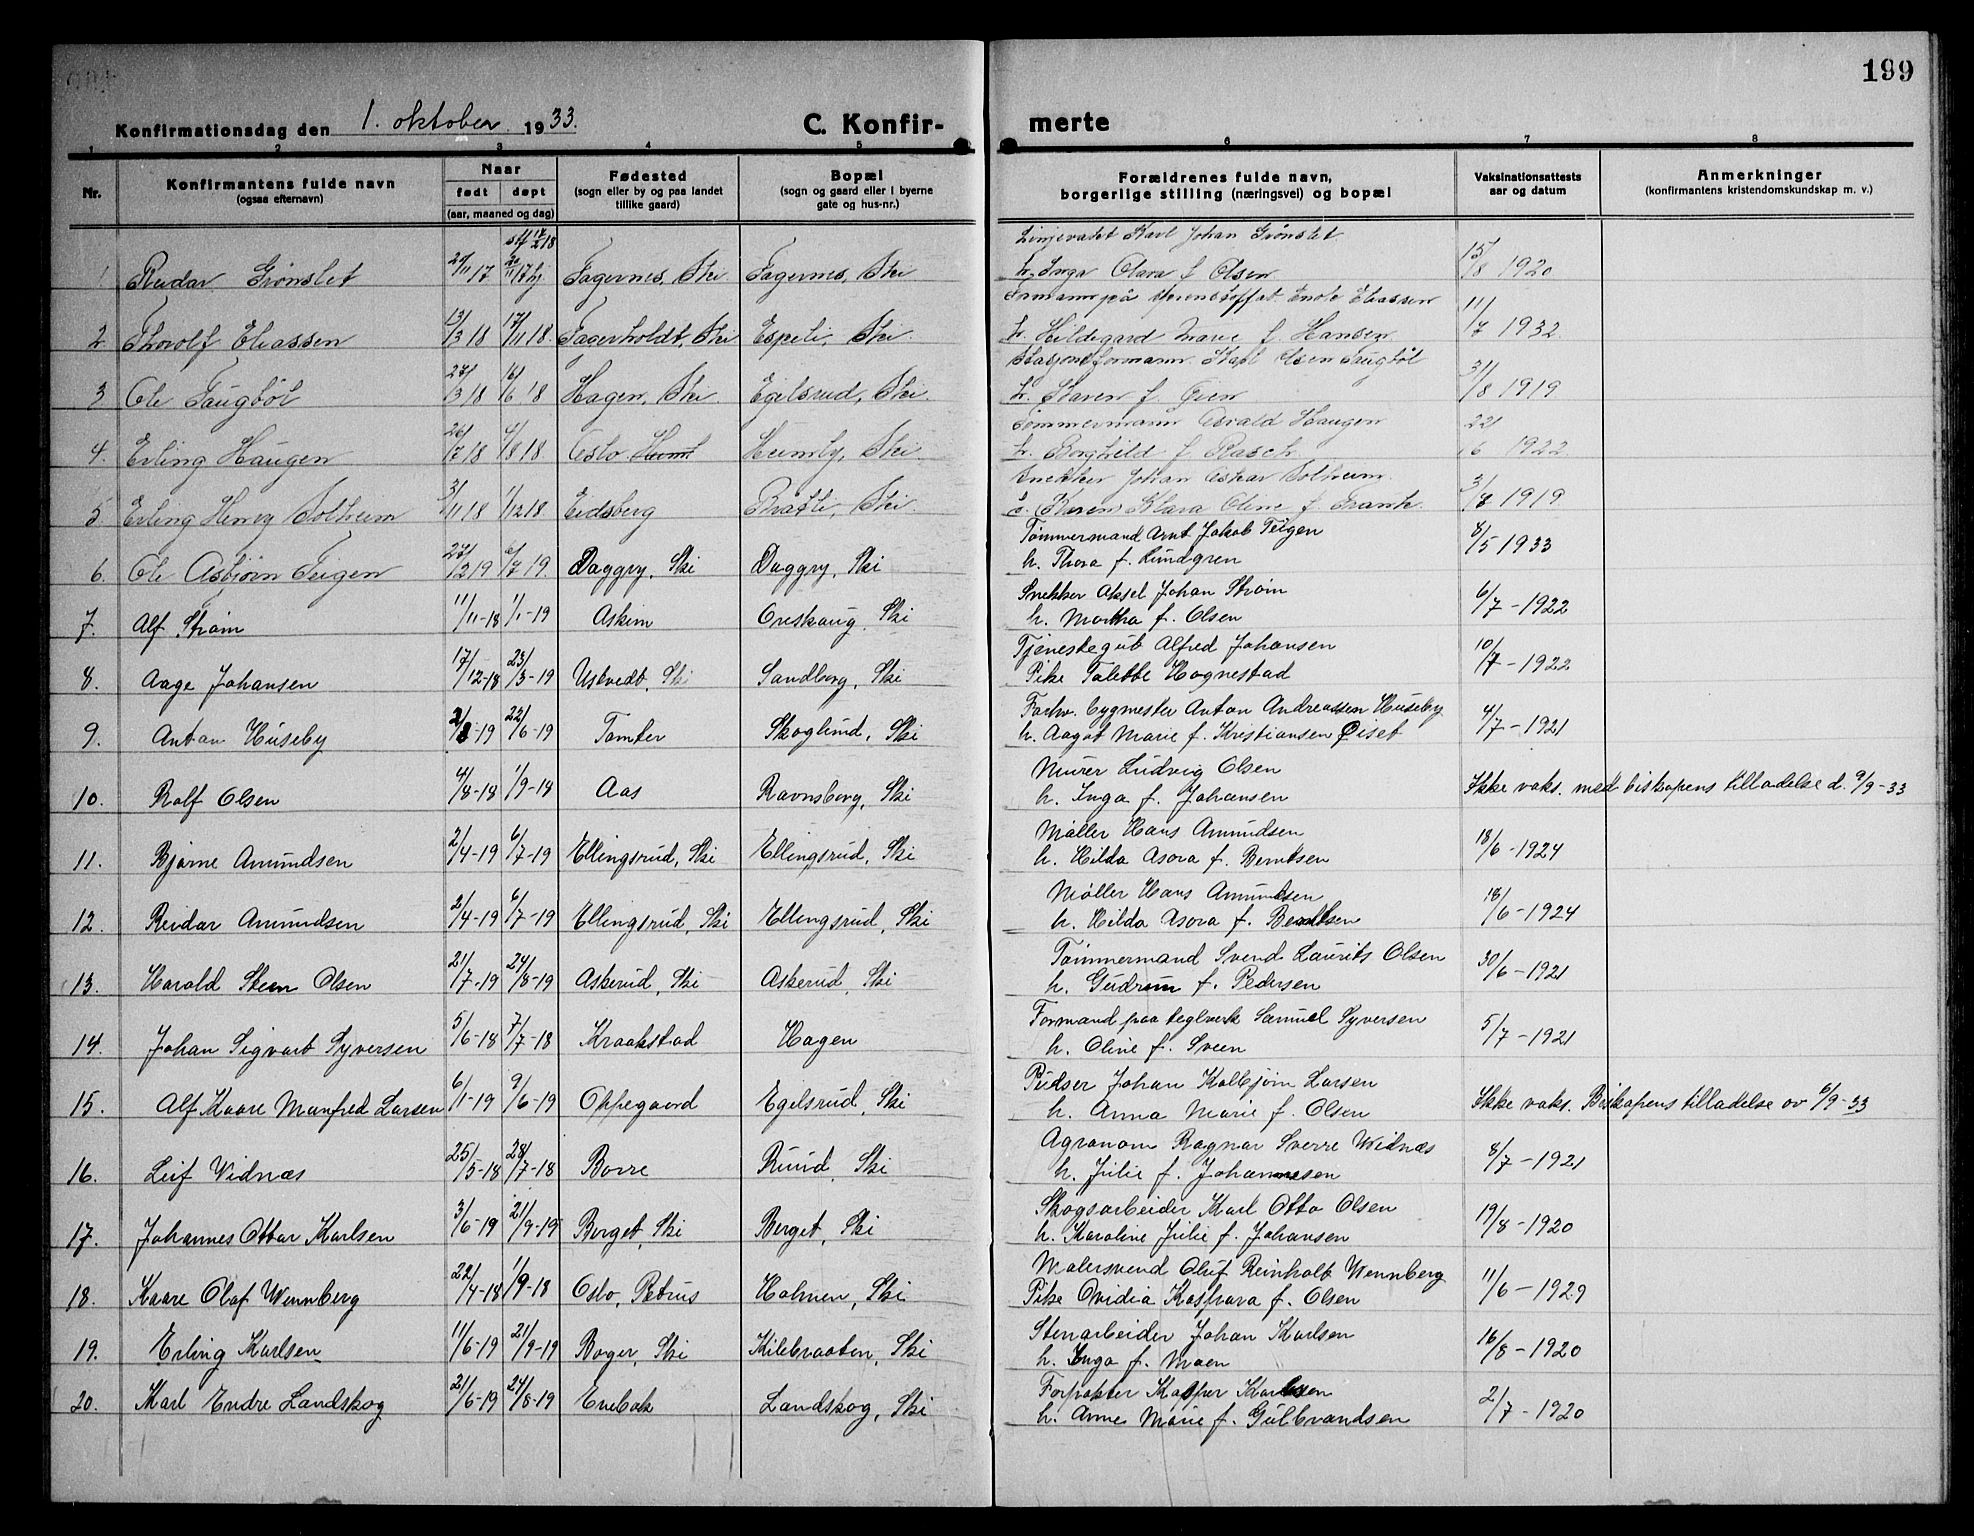 199
Konfirmationsdag den 1. oktober 1933. C. Konfir- merte
1 2 3 4 5 6 7 8
Nr. Konfirmantens fulde navn (ogsaa efternavn) Naar født døpt (aar, maaned og dag) Fødested (sogn eller by og paa landet tillike gaard) Bopæl (sogn og gaard eller i byerne gate og hus-nr.) Forældrenes fulde navn, borgerlige stilling (næringsvei) og bopæl Vaksinationsattests aar og datum Anmerkninger (konfirmantens kristendomskundskap m. v.)
Karl Johan Grønslet
1 Reidar Grønslet Fagernes, Ski Fagernes, Ski h. Inga Clara f. Olsen 15/8 1920
Formann på Enok Eliassen
2 Thorolf Eliassen 13/3 18 17/11 18 Fagerholdt, Ski Espeli, Ski h. Hildegard Marie f. Hansen 11/7 1932
Stasjonsformann Karl Olsen Taugbøl
3 Ole Taugbøl 27/3 18 16/6 18 Hagen, Ski Egelsrud, Ski h. Karen f. Øien 31/8 1919
Tømmermann Osvald Haugen
4. Erling Haugen 26/7 18 4/8 18 Oslo Humly, Ski h. Borghild f. Rasch 22/6 1922
Snekker Johan Oskar Solheim
5 Erling Henry Solheim 3/11 18 1/12 18 Eidsberg Bratli, Ski h. Karen Klara Oline f. Frank 3/8 1919
Tømmermand Arnt Jakob Teigen
6. Ole Asbjørn Teigen 27/2 19 6/7 19. Daggry, Ski Daggry, Ski h. Thora f. Lundgren 8/5 1933
Snekker Aksel Johan Strøm
7. Alf Strøm 11/11-18 1/1-19 Askim Oreskaug, Ski h. Martha f. Olsen 6/7-1922
Tjenestegut Alfred Johansen
8. Aage Johansen 17/12-18 23/3-19 Usevedt, Ski Sandberg, Ski Pike Talette Hognestad 10/7-1922
Forhv. bygmester Anton Andreassen Huseby
9. Anton Huseby 22/6-19 Tomter Skoglund, Ski h. Aagot Marie f. Kristiansen Qiset 4/7-1921
Murer Ludvig Olsen
10. Rolf Olsen 4/8-18 1/9-18 Aas Ravnsborg, Ski h. Inga f. Johansen Ikke vaks. med biskopens tilladelse d. 9/9-33
Møller Hans Amundsen
11. Bjarne Amundsen 2/4-19 6/7-19 Ellingsrud, Ski Ellingsrud, Ski h. Hilda Asora f. Berntsen 18/6-1924
Møller Hans Amundsen
12. Reidar Amundsen 2/4-19 6/7-19 Ellingsrud, Ski Ellingsrud, Ski h. Hilda Asora f. Berntsen 18/6-1924
Tømmermand Svend Laurits Olsen
13. Harald Steen Olsen 21/7-19 24/8-19 Askerud, Ski Askerud, Ski h. Gudrun f. Pedersen 30/6-1921
Formand paa teglverk Samuel Syversen
14. Johan Sigvart Syversen 5/6-18 7/7-18 Kraakstad Hagen h. Oline f. Sveen 5/7-1921
Pudser Johan Kolbjørn Larsen
15. Alf Kaare Manfred Larsen 6/1-19 9/6-19 Oppegaard Egelsrud, Ski h. Anna Marie f. Olsen Ikke vaks. Biskopens tilladelse av 6/9-33
Agronom Ragnar Sverre Widnæs
16. Leif Widnæs 25/5-18 28/7-18 Borre Ruud, Ski h. Julie f. Johannesen 8/7-1921
Skogsarbeider Karl Otto Olsen
17. Johannes Ottar Karlsen 3/6-19 21/9-19 Berget, Ski Berget, Ski h. Karoline Julie f. Johansen 19/8-1920
Malersvend Oluf Reinholt Wennberg
18. Kaare Olaf Wennberg 22/4-18 1/9-18 Oslo, Petrus Holmen, Ski Pike Ovidia Kaspara f. Olsen 11/6-1929
Stenarbeider Johan Karlsen
19. Erling Karlsen 11/6-19 21/9-19 Boger, Ski Kilebraaten, Ski h. Inga f. Moen 16/8-1920
Forpakter Kasper Karlsen
20. Karl Endre Landskog 21/6-19 24/8-19 Enebak Landskog, Ski h. Anne Marie f. Gulbrandsen 2/7-1920